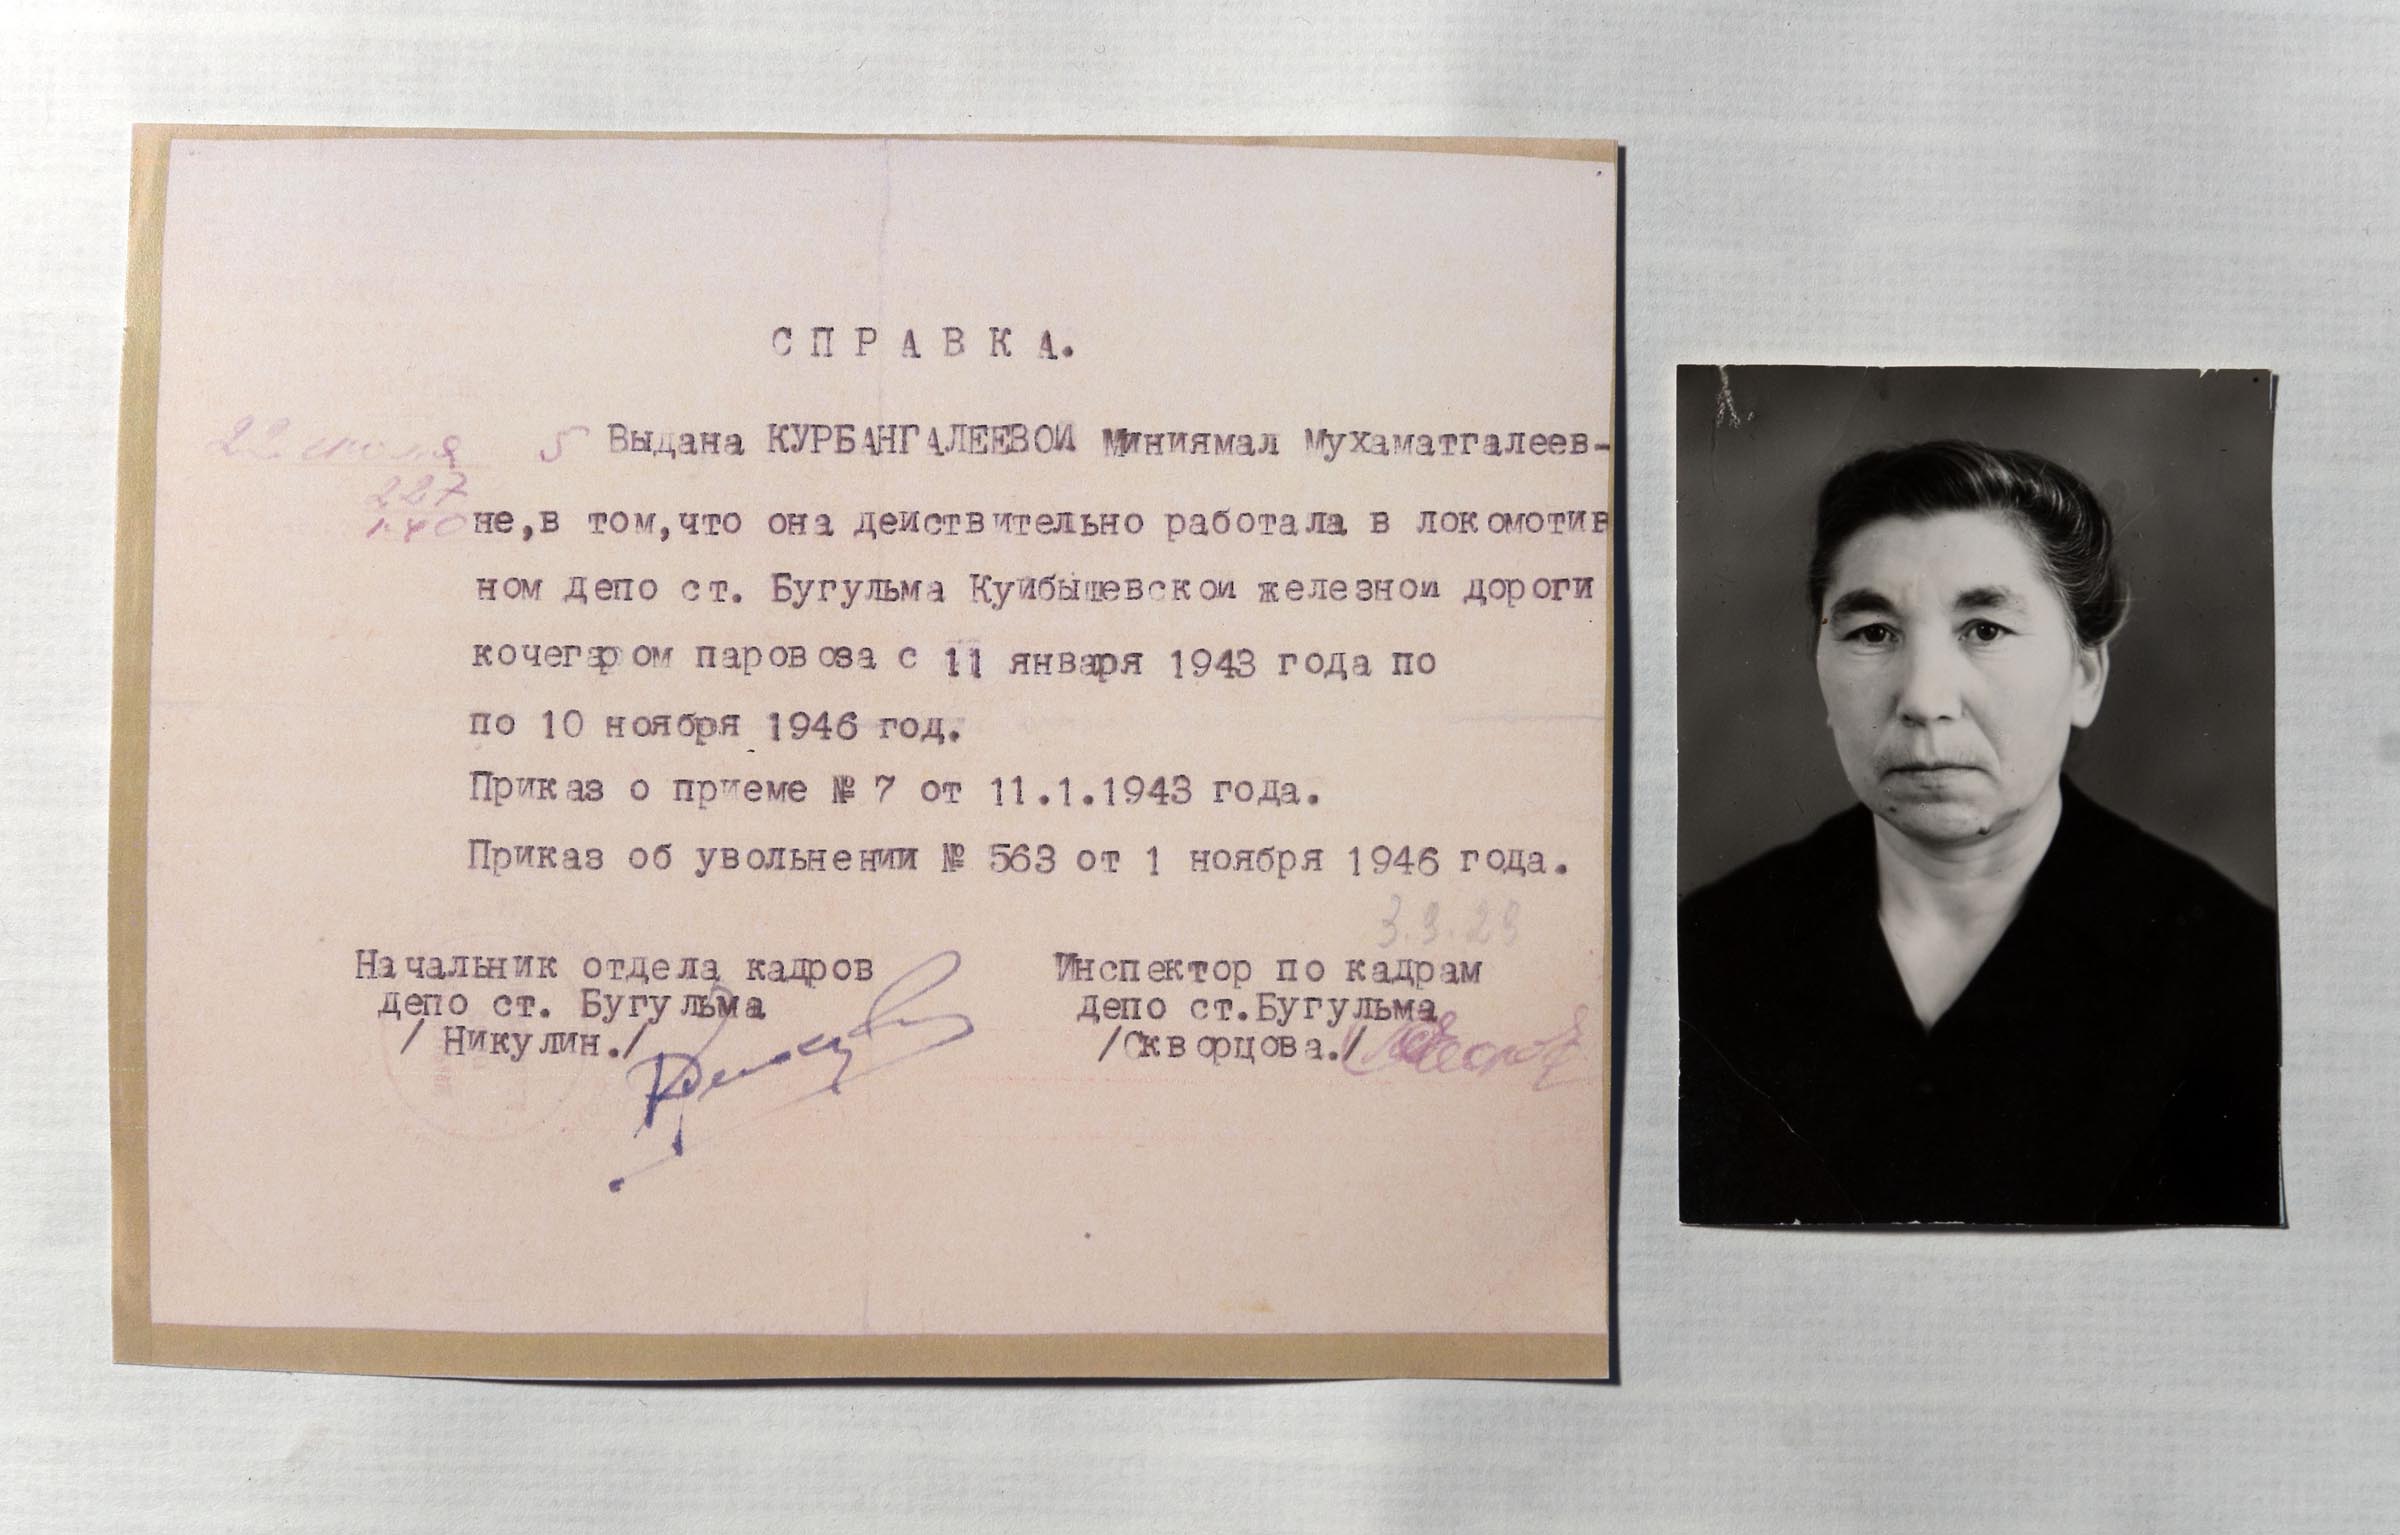 СПРАВКА.
22 июля 5 Выдана КУРБАНГАЛЕЕВОИ Миниямал Мухаматгалеев-
227
1-40 не,в том,что она действительно работала в локомотив
ном депо ст. Бугульма Куйбышевскои железнои дороги
кочегаром паровоза с 11 января 1943 года по
по 10 ноября 1946 год.
Приказ о приеме № 7 от 11.1.1943 года.
Приказ об увольнении № 563 от 1 ноября 1946 года.
3.9.29
Начальник отдела кадров
депо ст. Бугульма
/ Никулин./
Инспектор по кадрам
депо ст.Бугульма
/Скворцова./